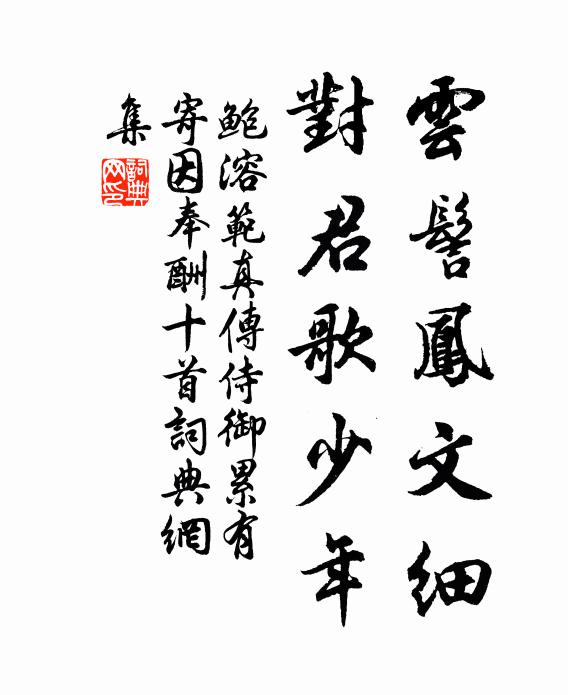 雲髻鳳文細
對君歌少年
鮑溶範真傳侍御累有
寄因奉酬十首詞典網
集
詞典網印